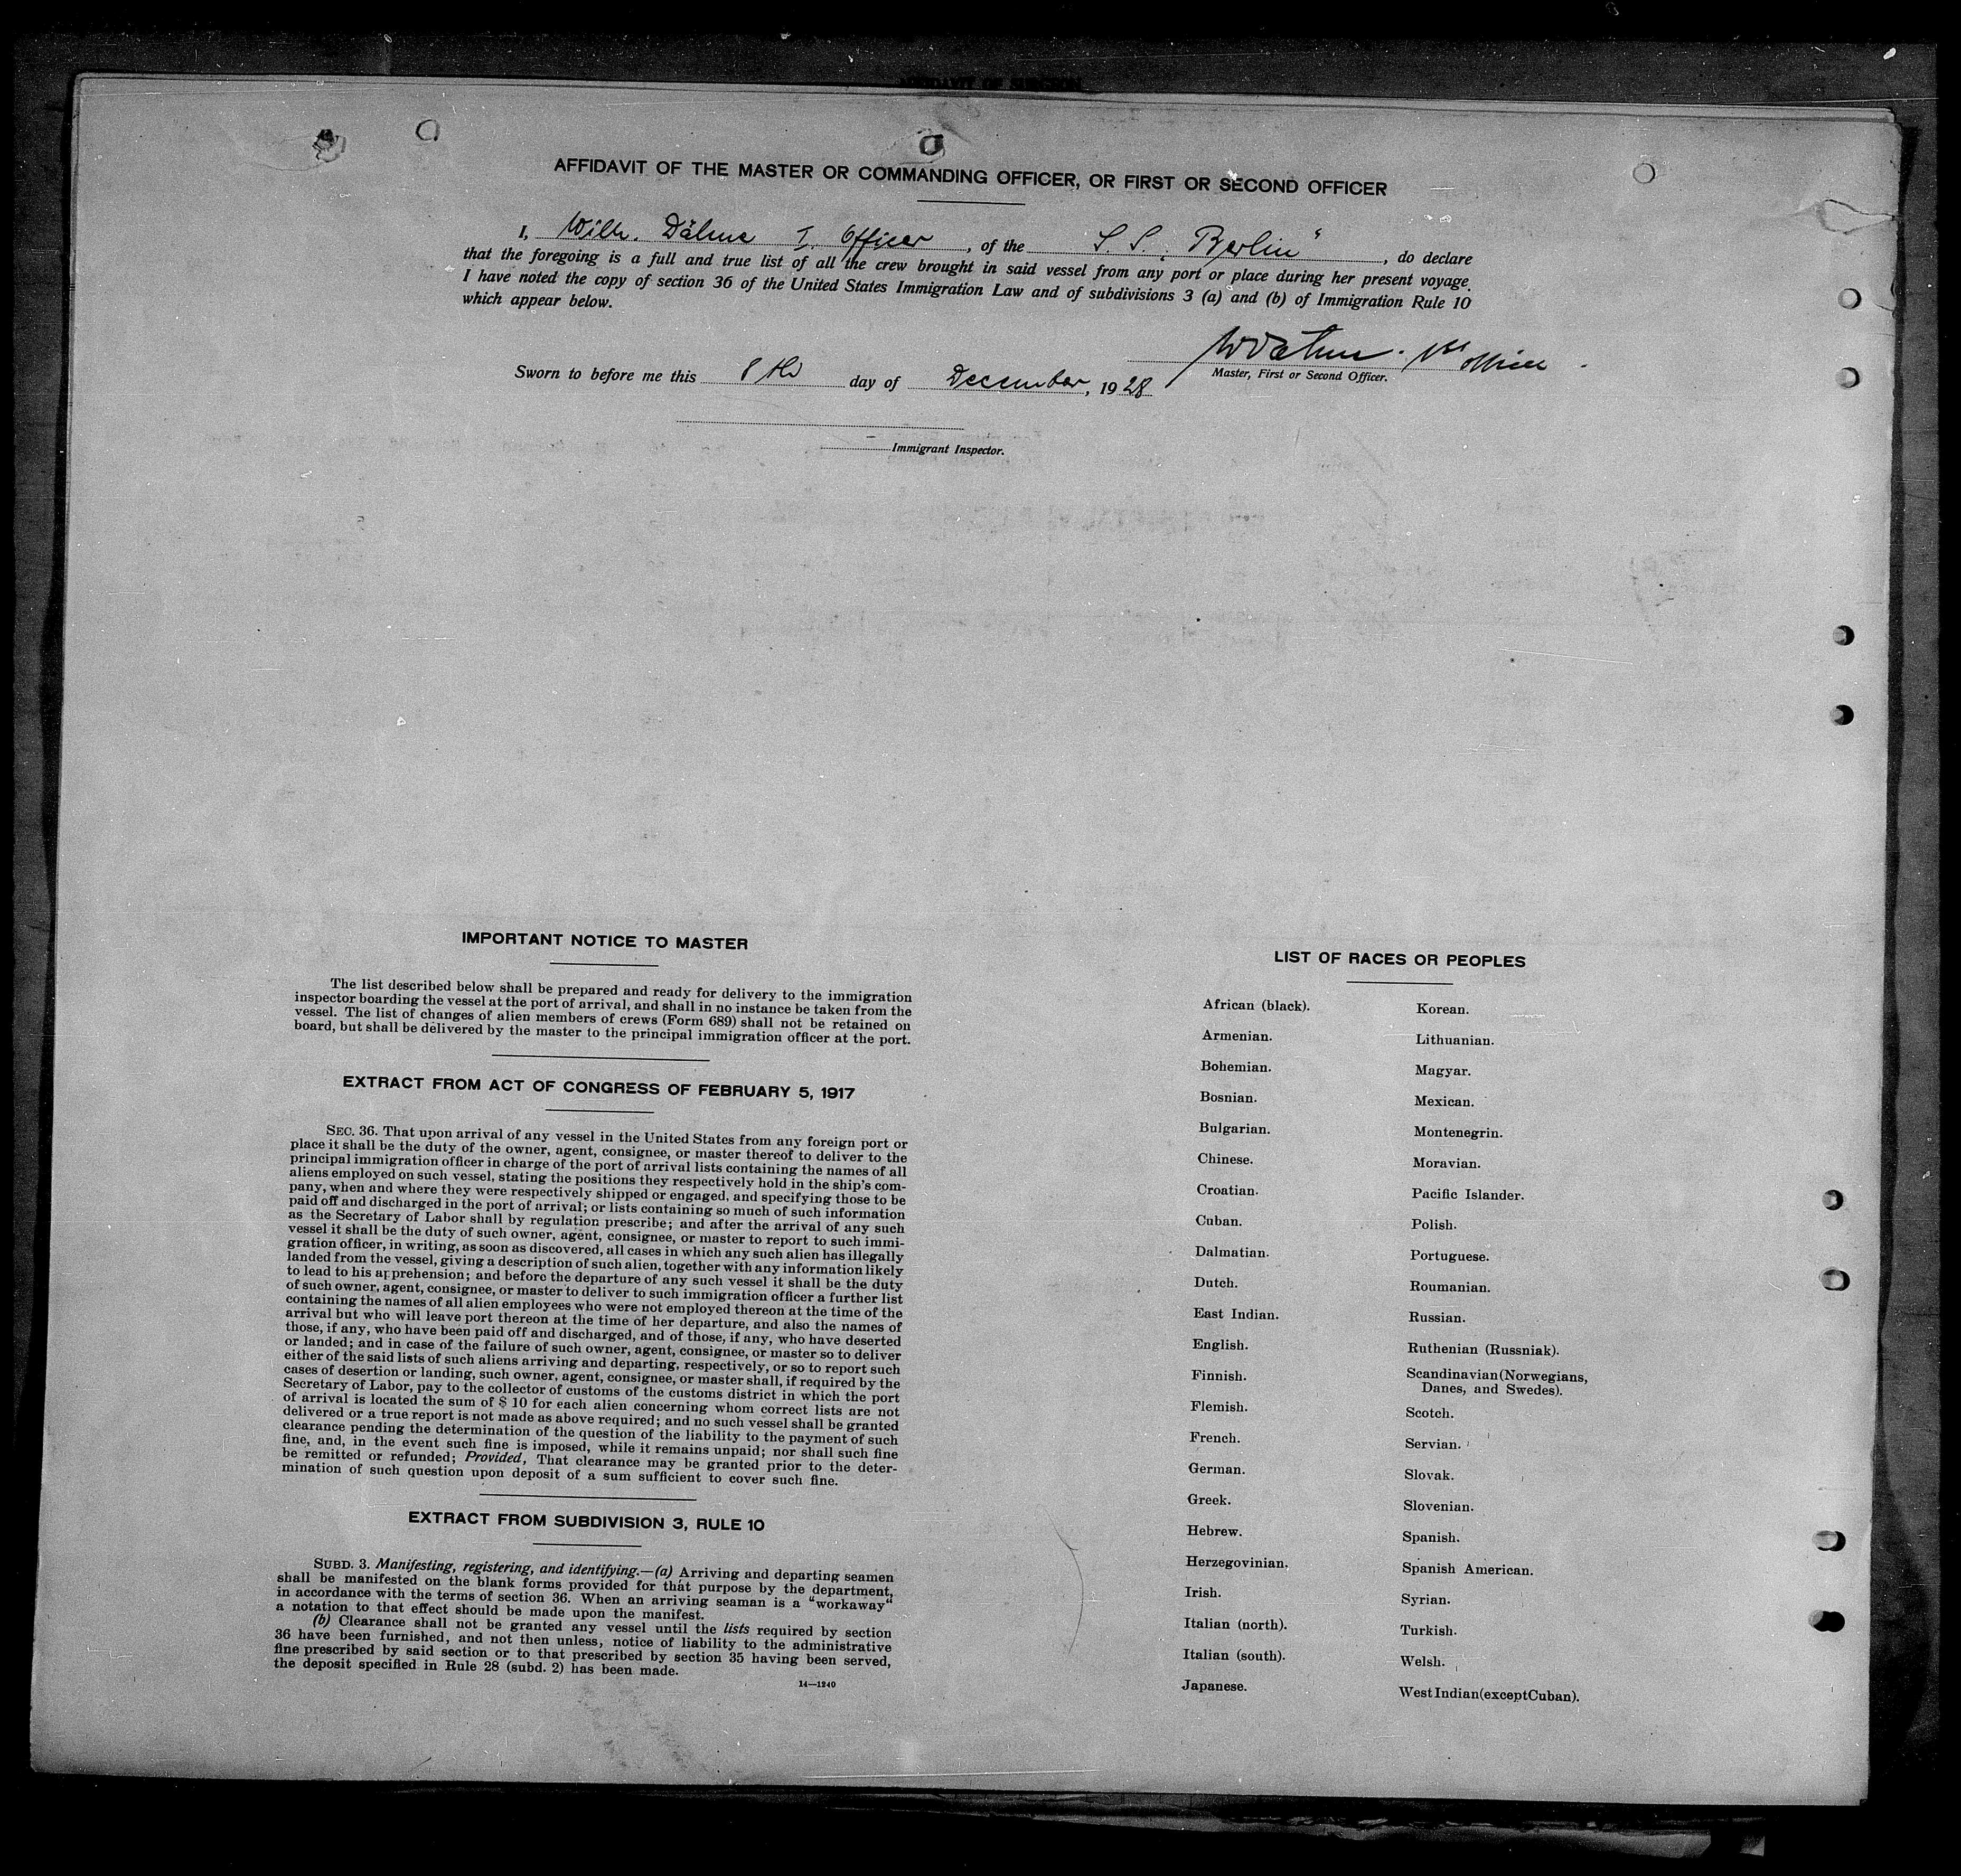 AFFIDAVIT OF THE MASTER OR COMMANDING OFFICER, OR FIRST OR SECOND OFFICER
I, Wilh. Dähne I. Officer, of the S. S. „Berlin“, do declare
that the foregoing is a full and true list of all the crew brought in said vessel from any port or place during her present voyage.
I have noted the copy of section 36 of the United States Immigration Law and of subdivisions 3 (a) and (b) of Immigration Rule 10
which appear below.
WDähne. 1st officer.
Master, First or Second Officer.
Sworn to before me this 8th day of December, 1928
Immigrant Inspector.
IMPORTANT NOTICE TO MASTER
The list described below shall be prepared and ready for delivery to the immigration
inspector boarding the vessel at the port of arrival, and shall in no instance be taken from the
vessel. The list of changes of alien members of crews (Form 689) shall not be retained on
board, but shall be delivered by the master to the principal immigration officer at the port.
EXTRACT FROM ACT OF CONGRESS OF FEBRUARY 5, 1917
SEC. 36. That upon arrival of any vessel in the United States from any foreign port or
place it shall be the duty of the owner, agent, consignee, or master thereof to deliver to the
principal immigration officer in charge of the port of arrival lists containing the names of all
aliens employed on such vessel, stating the positions they respectively hold in the ship's com-
pany, when and where they were respectively shipped or engaged, and specifying those to be
paid off and discharged in the port of arrival; or lists containing so much of such information
as the Secretary of Labor shall by regulation prescribe; and after the arrival of any such
vessel it shall be the duty of such owner, agent, consignee, or master to report to such immi-
gration officer, in writing, as soon as discovered, all cases in which any such alien has illegally
landed from the vessel, giving a description of such alien, together with any information likely
to lead to his apprehension; and before the departure of any such vessel it shall be the duty
of such owner, agent, consignee, or master to deliver to such immigration officer a further list
containing the names of all alien employees who were not employed thereon at the time of the
arrival but who will leave port thereon at the time of her departure, and also the names of
those, if any, who have been paid off and discharged, and of those, if any, who have deserted
or landed; and in case of the failure of such owner, agent, consignee, or master so to deliver
either of the said lists of such aliens arriving and departing, respectively, or so to report such
cases of desertion or landing, such owner, agent, consignee, or master shall, if required by the
Secretary of Labor, pay to the collector of customs of the customs district in which the port
of arrival is located the sum of $ 10 for each alien concerning whom correct lists are not
delivered or a true report is not made as above required; and no such vessel shall be granted
clearance pending the determination of the question of the liability to the payment of such
fine, and, in the event such fine is imposed, while it remains unpaid; nor shall such fine
be remitted or refunded; Provided, That clearance may be granted prior to the deter-
mination of such question upon deposit of a sum sufficient to cover such fine.
EXTRACT FROM SUBDIVISION 3, RULE 10
SUBD. 3. Manifesting, registering, and identifying.—(a) Arriving and departing seamen
shall be manifested on the blank forms provided for that purpose by the department,
in accordance with the terms of section 36. When an arriving seaman is a "workaway"
a notation to that effect should be made upon the manifest.
(b) Clearance shall not be granted any vessel until the lists required by section
36 have been furnished, and not then unless, notice of liability to the administrative
fine prescribed by said section or to that prescribed by section 35 having been served,
the deposit specified in Rule 28 (subd. 2) has been made.
14—1240
LIST OF RACES OR PEOPLES
African (black).
Armenian.
Bohemian.
Bosnian.
Bulgarian.
Chinese.
Croatian.
Cuban.
Dalmatian.
Dutch.
East Indian.
English.
Finnish.
Flemish.
French.
German.
Greek.
Hebrew.
Herzegovinian.
Irish.
Italian (north).
Italian (south).
Japanese.
Korean.
Lithuanian.
Magyar.
Mexican.
Montenegrin.
Moravian.
Pacific Islander.
Polish.
Portuguese.
Roumanian.
Russian.
Ruthenian (Russniak).
Scandinavian (Norwegians,
Danes, and Swedes).
Scotch.
Servian.
Slovak.
Slovenian.
Spanish.
Spanish American.
Syrian.
Turkish.
Welsh.
West Indian (except Cuban).